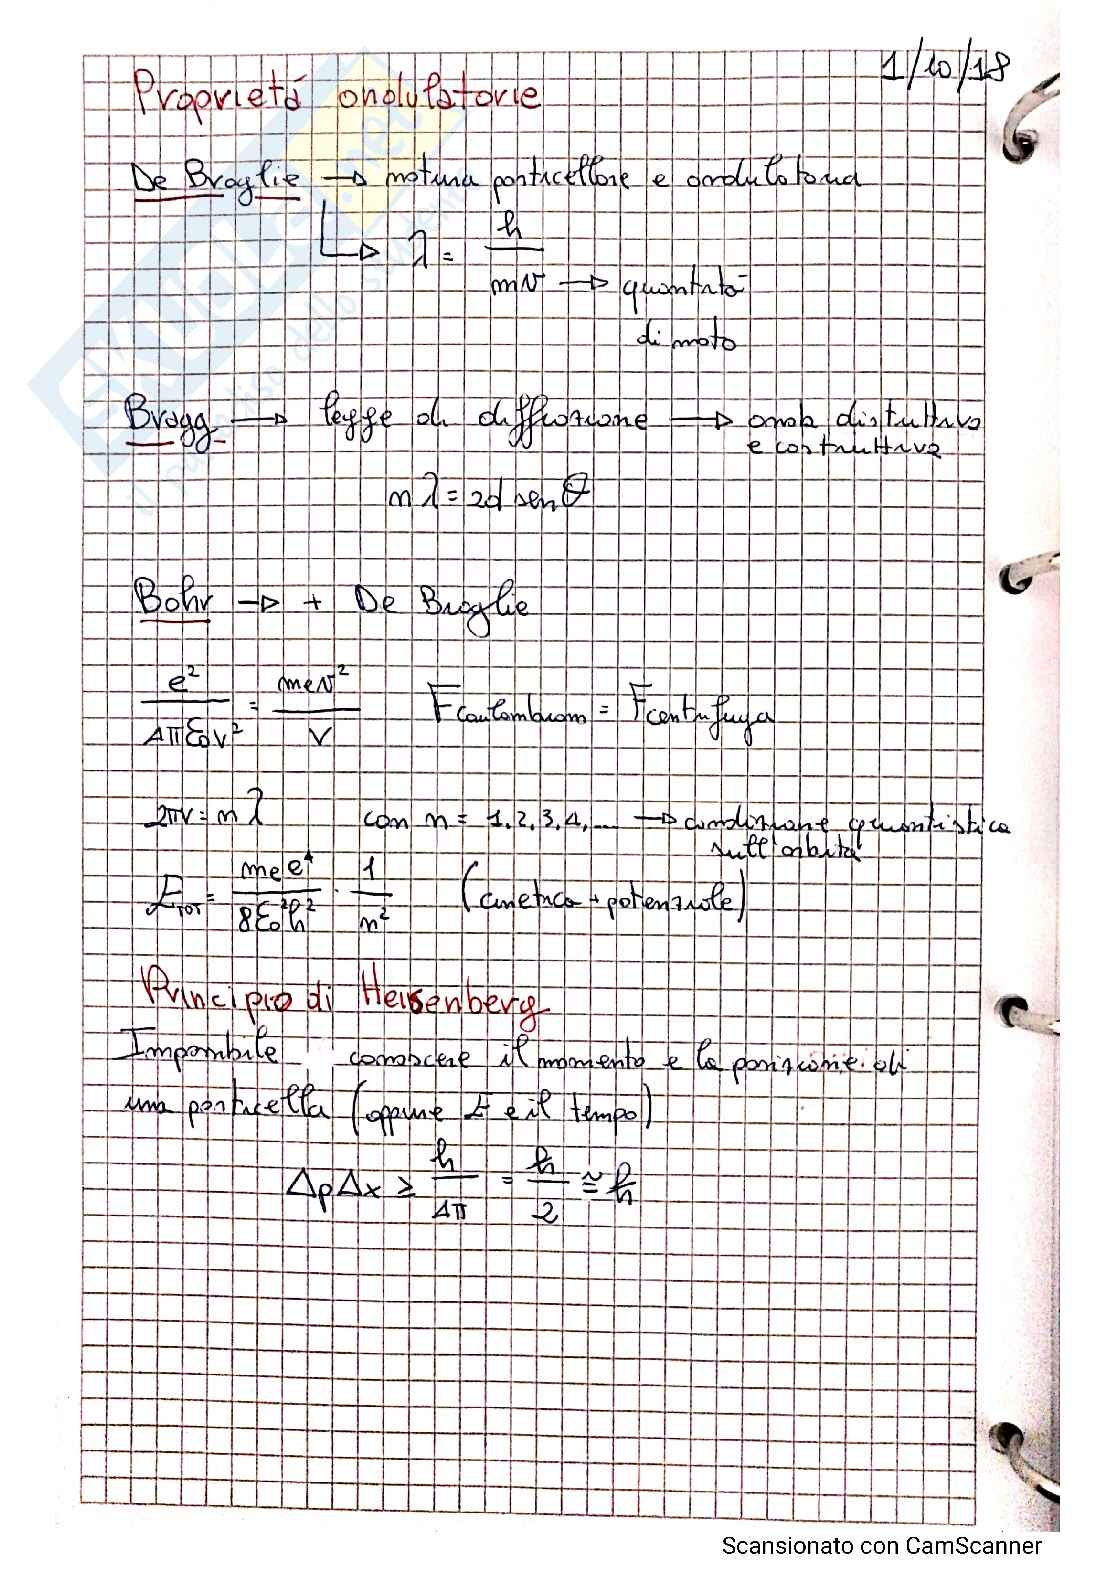 1/10/18
Proprietá ondulatorie
De Broglie → natura particellare e ondulatoria
↳ λ = h / mv → quantità
di moto
Bragg → legge di diffrazione → onda distruttiva
e costruttiva
nλ = 2d senθ
Bohr → + De Broglie
e² / 4πε₀r² = mev² / r   Fcoulombiana = Fcentrifuga
2πr = nλ   con n = 1, 2, 3, 4, ... → condizione quantistica
sull'orbita
ETOT = mee⁴ / 8ε₀²h² · 1 / n²   (cinetica + potenziale)
Principio di Heisenberg
Impossibile conoscere il momento e la posizione di
una particella (oppure E e il tempo)
ΔpΔx ≥ h / 4π = ħ / 2 ≅ ħ
skuola.net
il paradiso dello studente
Scansionato con CamScanner